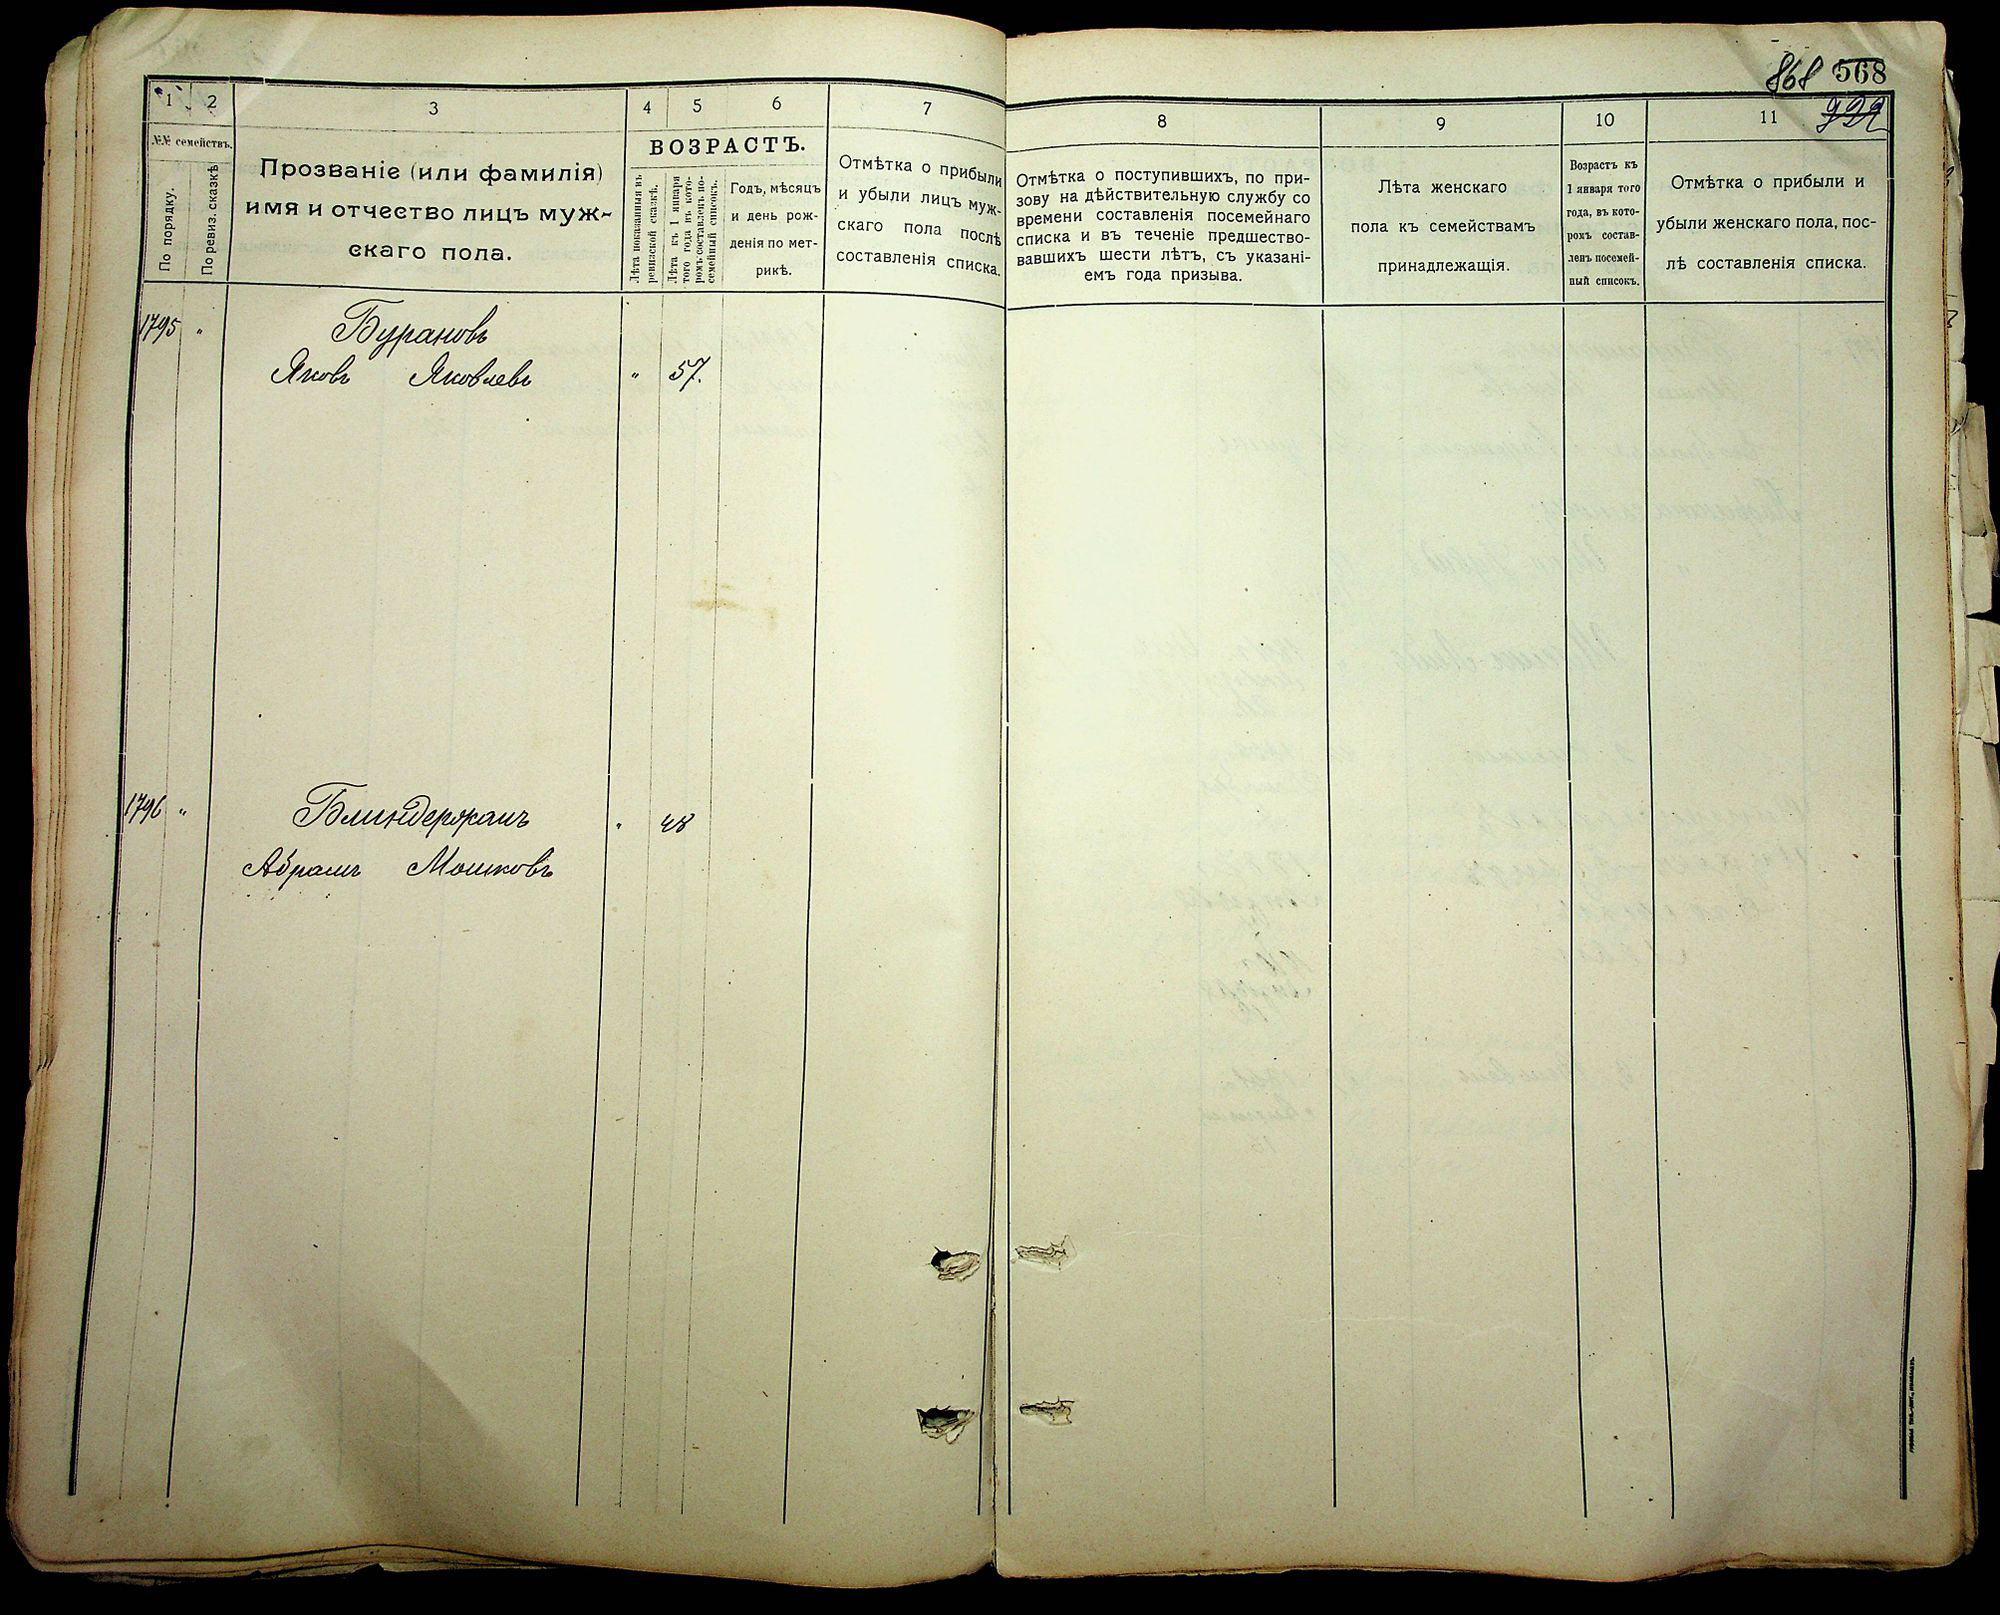 868 568
922
1 2 3 4 5 6 7 8 9 10 11
№№ семействъ.
По порядку.
По ревиз. сказкѣ
Прозваніе (или фамилія)
имя и отчество лицъ муж-
скаго пола.
ВОЗРАСТЪ.
Лѣта показанныя въ
ревизской сказкѣ.
Лѣта къ 1 января
того года въ кото-
ромъ составленъ по-
семейный списокъ.
Годъ, мѣсяцъ
и день рож-
денія по мет-
рикѣ.
Отмѣтка о прибыли
и убыли лицъ муж-
скаго пола послѣ
составленія списка.
Отмѣтка о поступившихъ, по при-
зову на дѣйствительную службу со
времени составленія посемейнаго
списка и въ теченіе предшество-
вавшихъ шести лѣтъ, съ указані-
емъ года призыва.
Лѣта женскаго
пола къ семействамъ
принадлежащія.
Возрастъ къ
1 января того
года, въ кото-
рохъ состав-
ленъ посемей-
ный списокъ.
Отмѣтка о прибыли и
убыли женскаго пола, пос-
лѣ составленія списка.
1795 " Бурановъ
Яковъ Яковлевъ " 57.
1796 " Блиндерманъ " 48
Абрамъ Мошковъ